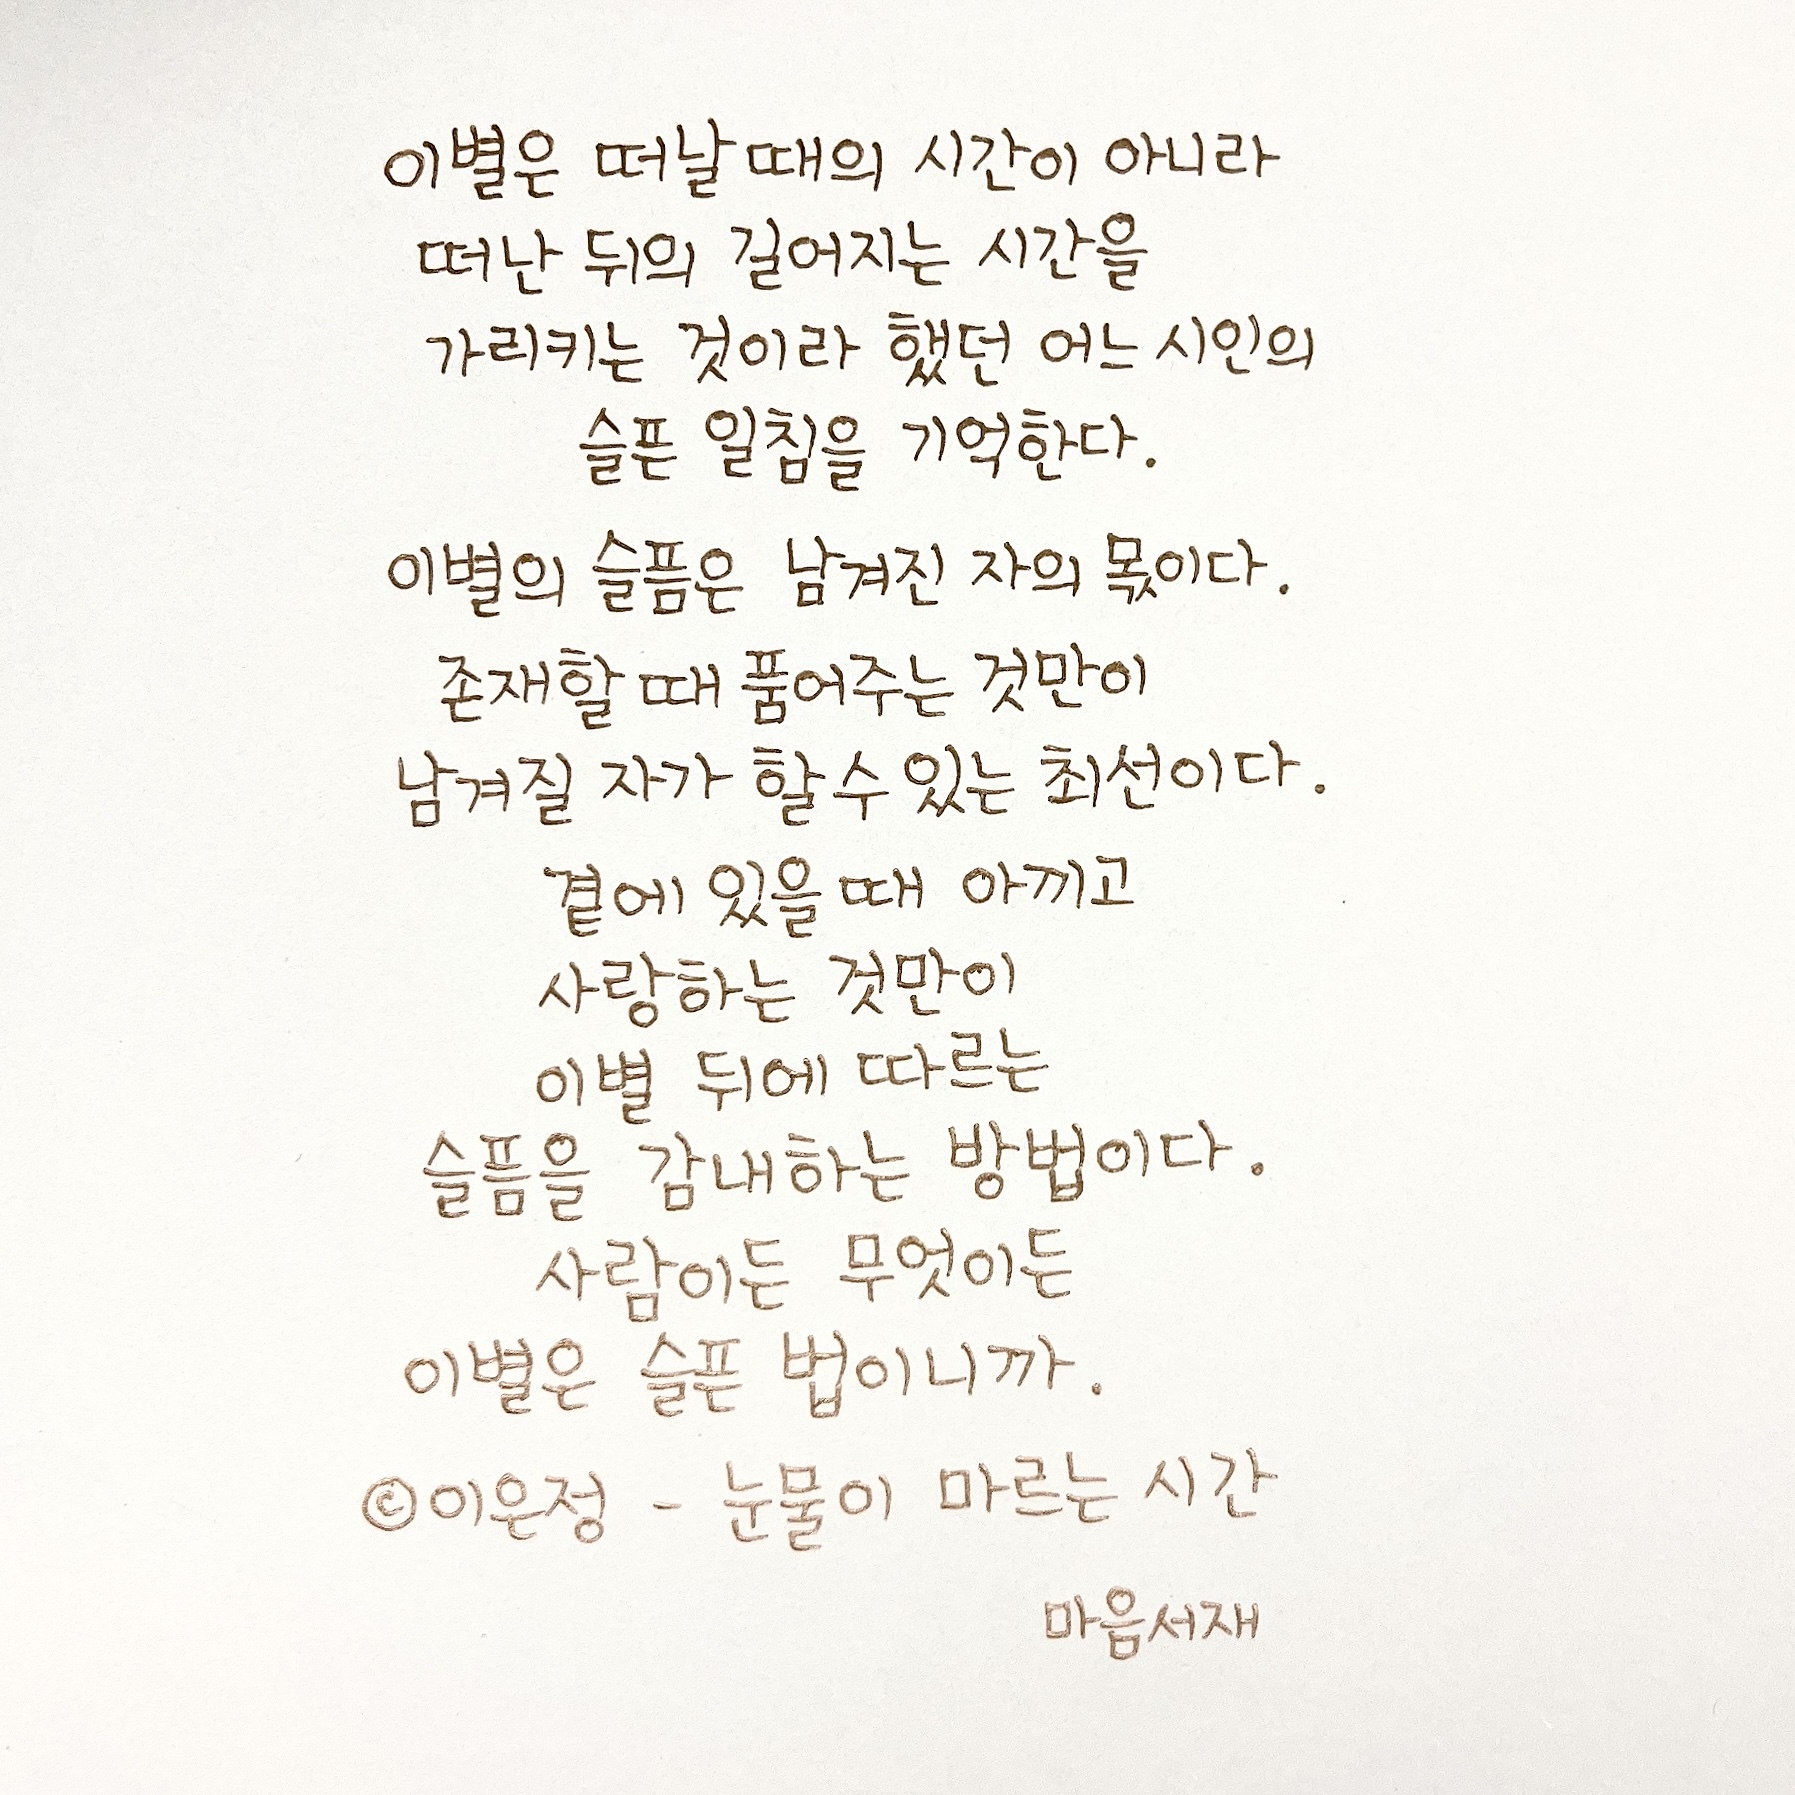 이별은 떠날 때의 시간이 아니라
떠난 뒤의 길어지는 시간을
가리키는 것이라 했던 어느 시인의
슬픈 일침을 기억한다.
이별의 슬픔은 남겨진 자의 몫이다.
존재할 때 품어주는 것만이
남겨질 자가 할 수 있는 최선이다.
곁에 있을 때 아끼고
사랑하는 것만이
이별 뒤에 따르는
슬픔을 감내하는 방법이다.
사람이든 무엇이든
이별은 슬픈 법이니까.
©이은정 - 눈물이 마르는 시간
마음서재